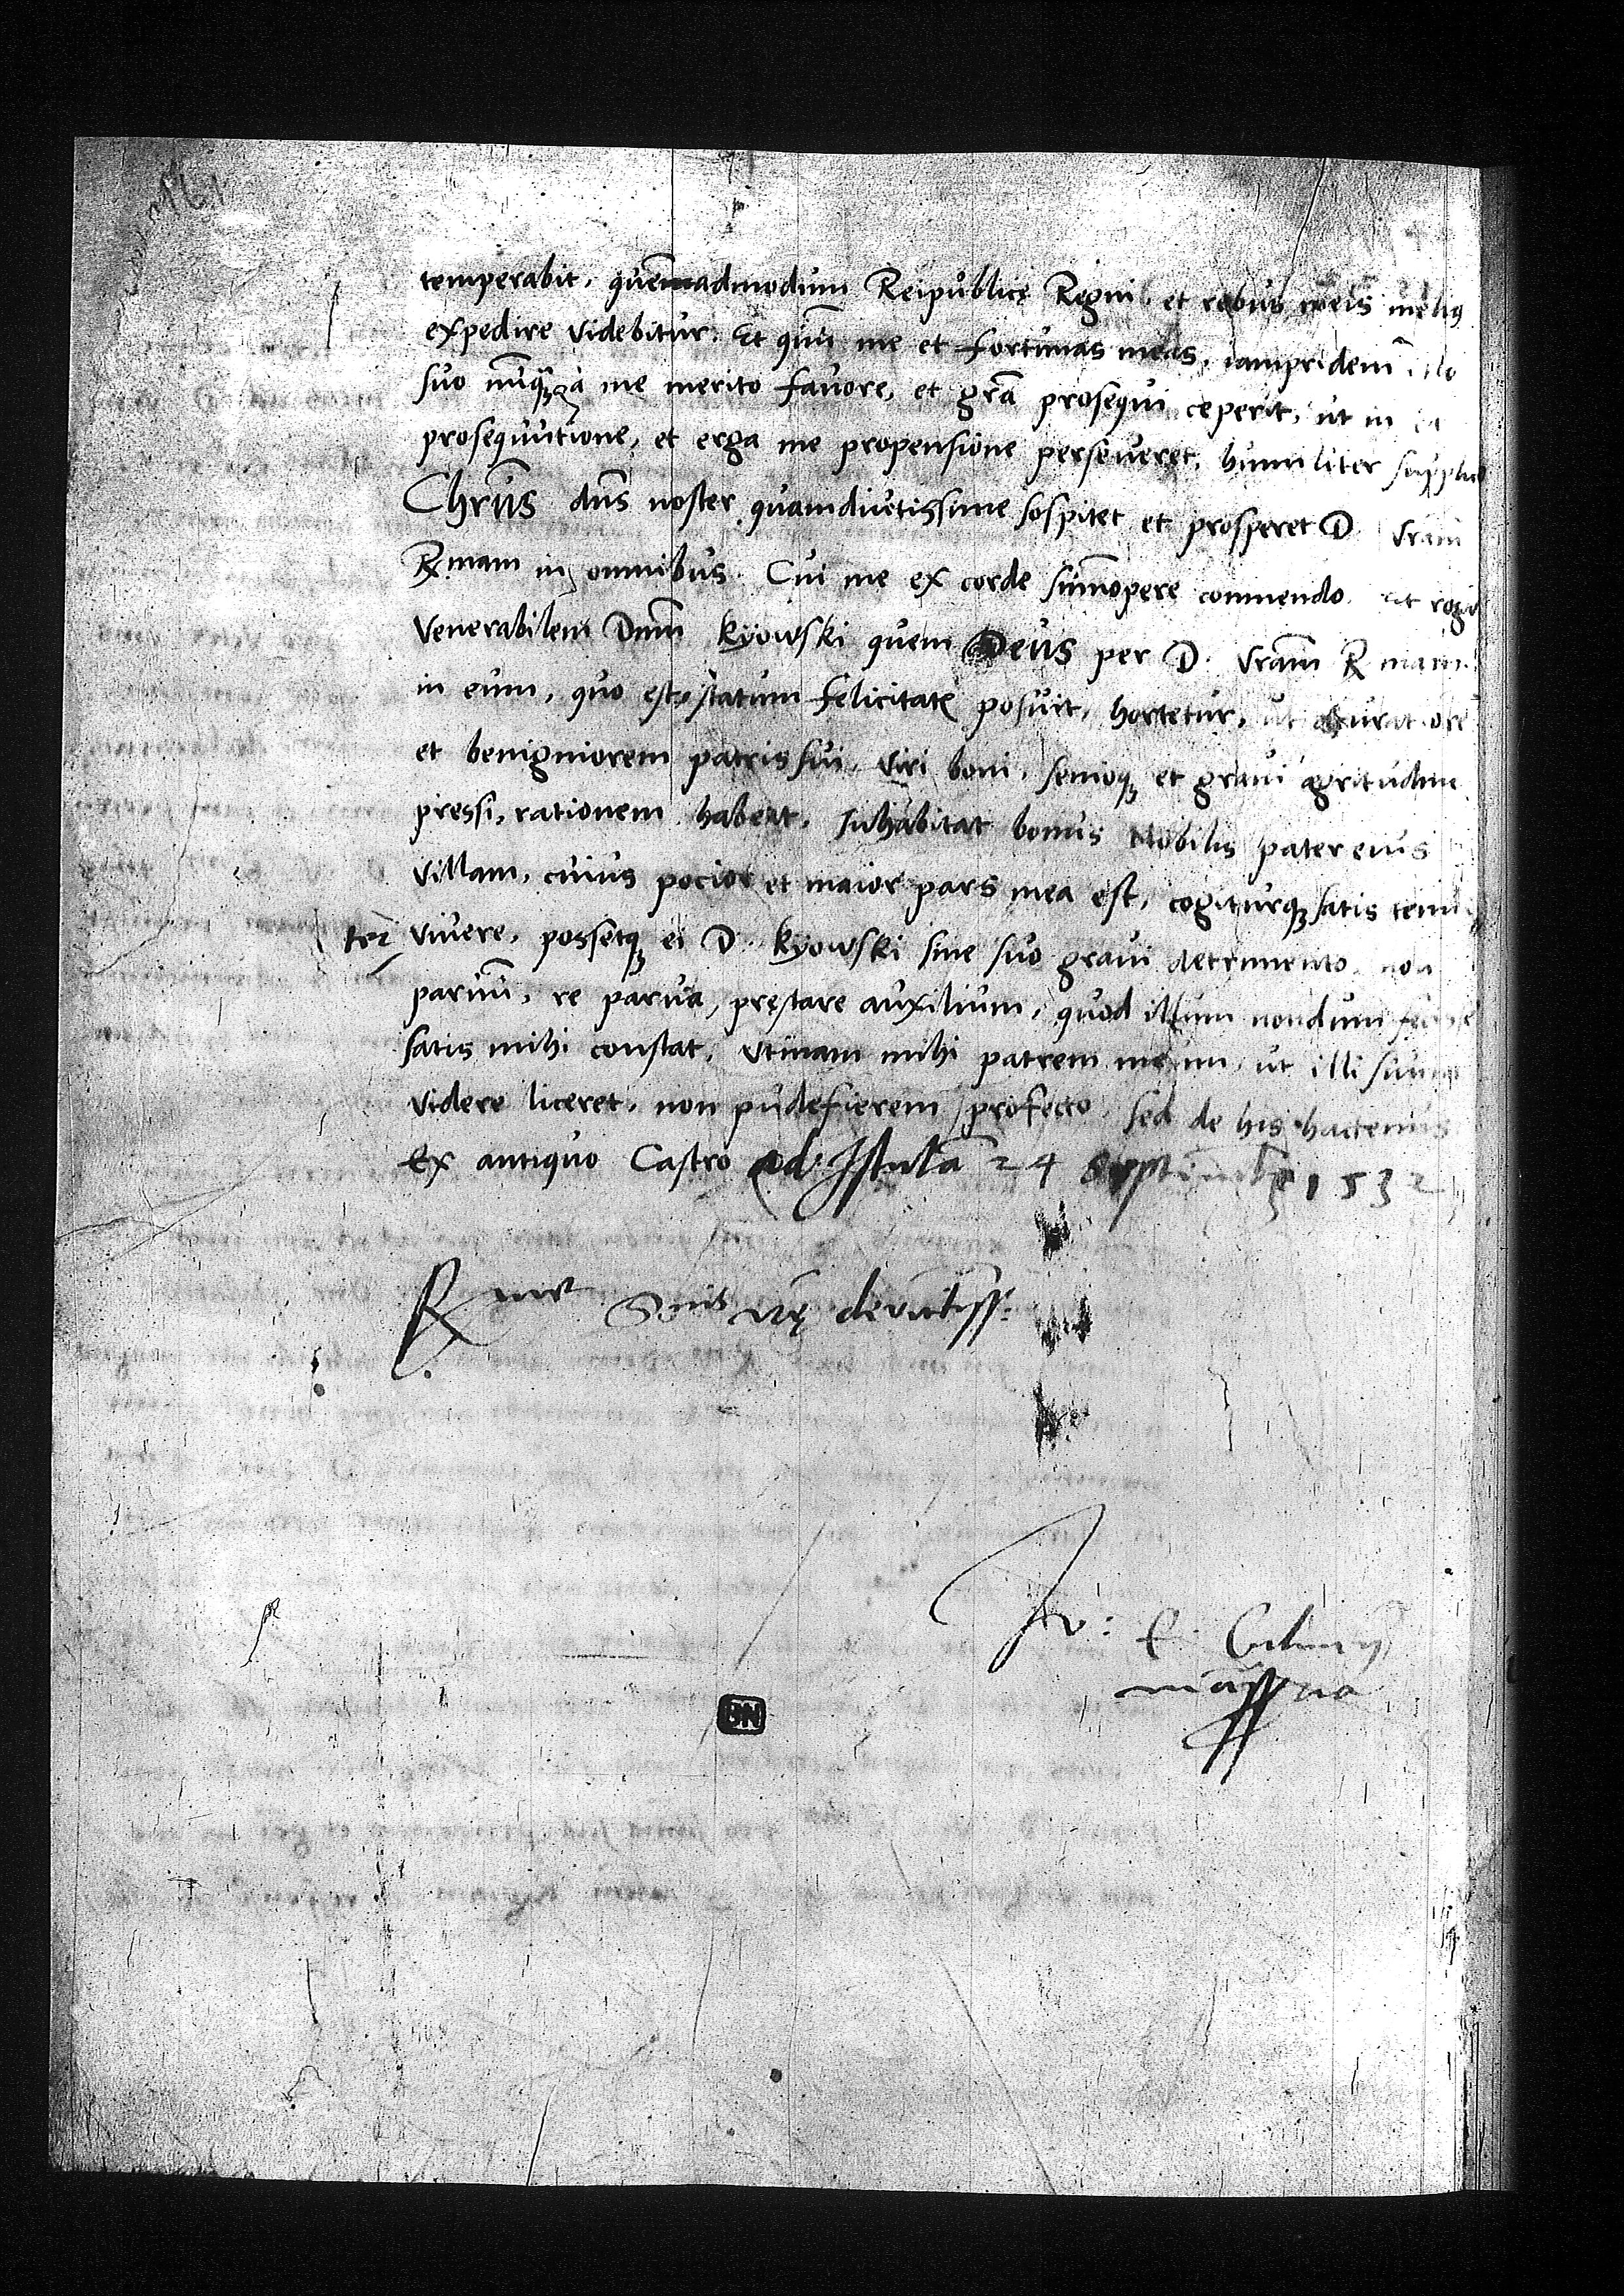 temperabit, quēmadmodum Reipublicę Regni, et rebus meis melius
expedire videbitur. Et quū me et fortunas meas, iampridem illo
suo nūq̃ȝ à me merito favore, et grã prosequi ceperit, ut in
prosequutione, et erga me propensione perseveret, humiliter
Chrūs dns noster quamdiutissime sospitet et prosperet D. vram
Rmam in omnibus. Cui me ex corde sūmopere commendo. et rogo
Venerabilem Dnm Kyowski quem Deus per D. Vram Rmam
in eum, quo est, statum felicitatis posuit, hortetur, ut
et benigniorem patris sui, viri boni, senioqȝ et gravi ęgritudine
pressi, rationem habeat. Inhabitat bonus Nobilis pater eius
villam, cuius pocior et maior pars mea est, cogiturqȝ satis tenui
ter vivere, possetqȝ ei D. Kyowski sine suo gravi detrimento, non
parum, re parva, pręstare auxilium, quod illum nondum fecisse
satis mihi constat, Utinam mihi patrem meum, ut illi suum
videre liceret, non pudefierem profecto. sed de his hactenus
Ex antiquo Castro ad Istulã 24 Septembr 1532
Rme Dnis vrę devotiss:
mãp pria
BN